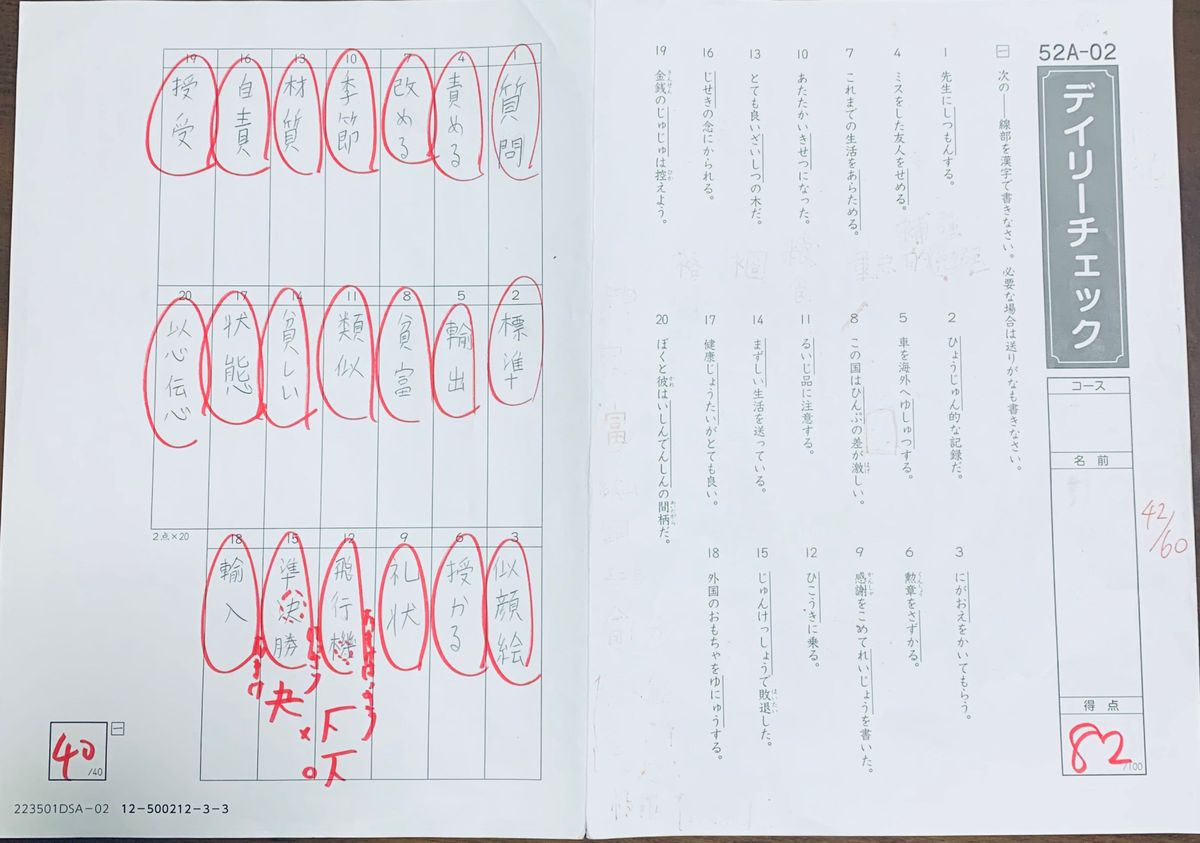 52A-02
デイリーチェック
コース
名前
得点
82
/100
42/60
一 次の――線部を漢字で書きなさい。必要な場合は送りがなも書きなさい。
1 先生にしつもんする。
2 ひょうじゅん的な記録だ。
3 にがおえをかいてもらう。
4 ミスをした友人をせめる。
5 車を海外へゆしゅつする。
6 勲章をさずかる。
くんしょう
7 これまでの生活をあらためる。
8 この国はひんぷの差が激しい。
はげ
9 感謝をこめてれいじょうを書いた。
かんしゃ
10 あたたかいきせつになった。
11 るいじ品に注意する。
12 ひこうきに乗る。
13 とても良いざいしつの木だ。
14 まずしい生活を送っている。
15 じゅんけっしょうで敗退した。
はいたい
16 じせきの念にかられる。
17 健康じょうたいがとても良い。
18 外国のおもちゃをゆにゅうする。
19 金銭のじゅじゅは控えよう。
きんせん
ひか
20 ぼくと彼はいしんでんしんの間柄だ。
かれ
あいだがら
1 質問
2 標準
3 似顔絵
4 責める
5 輸出
6 授かる
7 改める
8 貧富
9 礼状
10 季節
11 類似
12 飛行機
13 材質
14 貧しい
15 準決勝
16 自責
17 状態
18 輸入
19 授受
20 以心伝心
2点×20
一
40
/40
223501DSA-02 12-500212-3-3